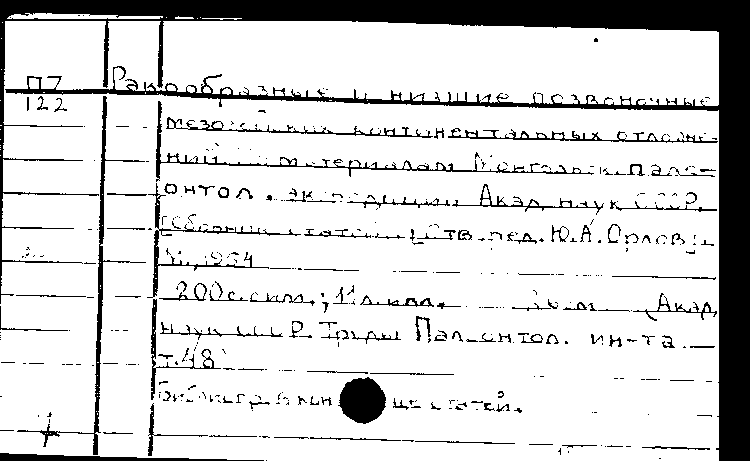 П7 Ракообразные и низшие позвоночные
122
мезозойских континентальных отложе-
ний материалам Монгольск. пале-
онтол. экспедиции Акад. наук СССР.
[Сборник статей. Отв. ред. Ю.А. Орлов].
М., 1954
200 с. с илл.; 11 л. илл. (Акад.
наук СССР. Труды Палеонтол. ин-та
т. 48
Библиогр. в кон це статей.